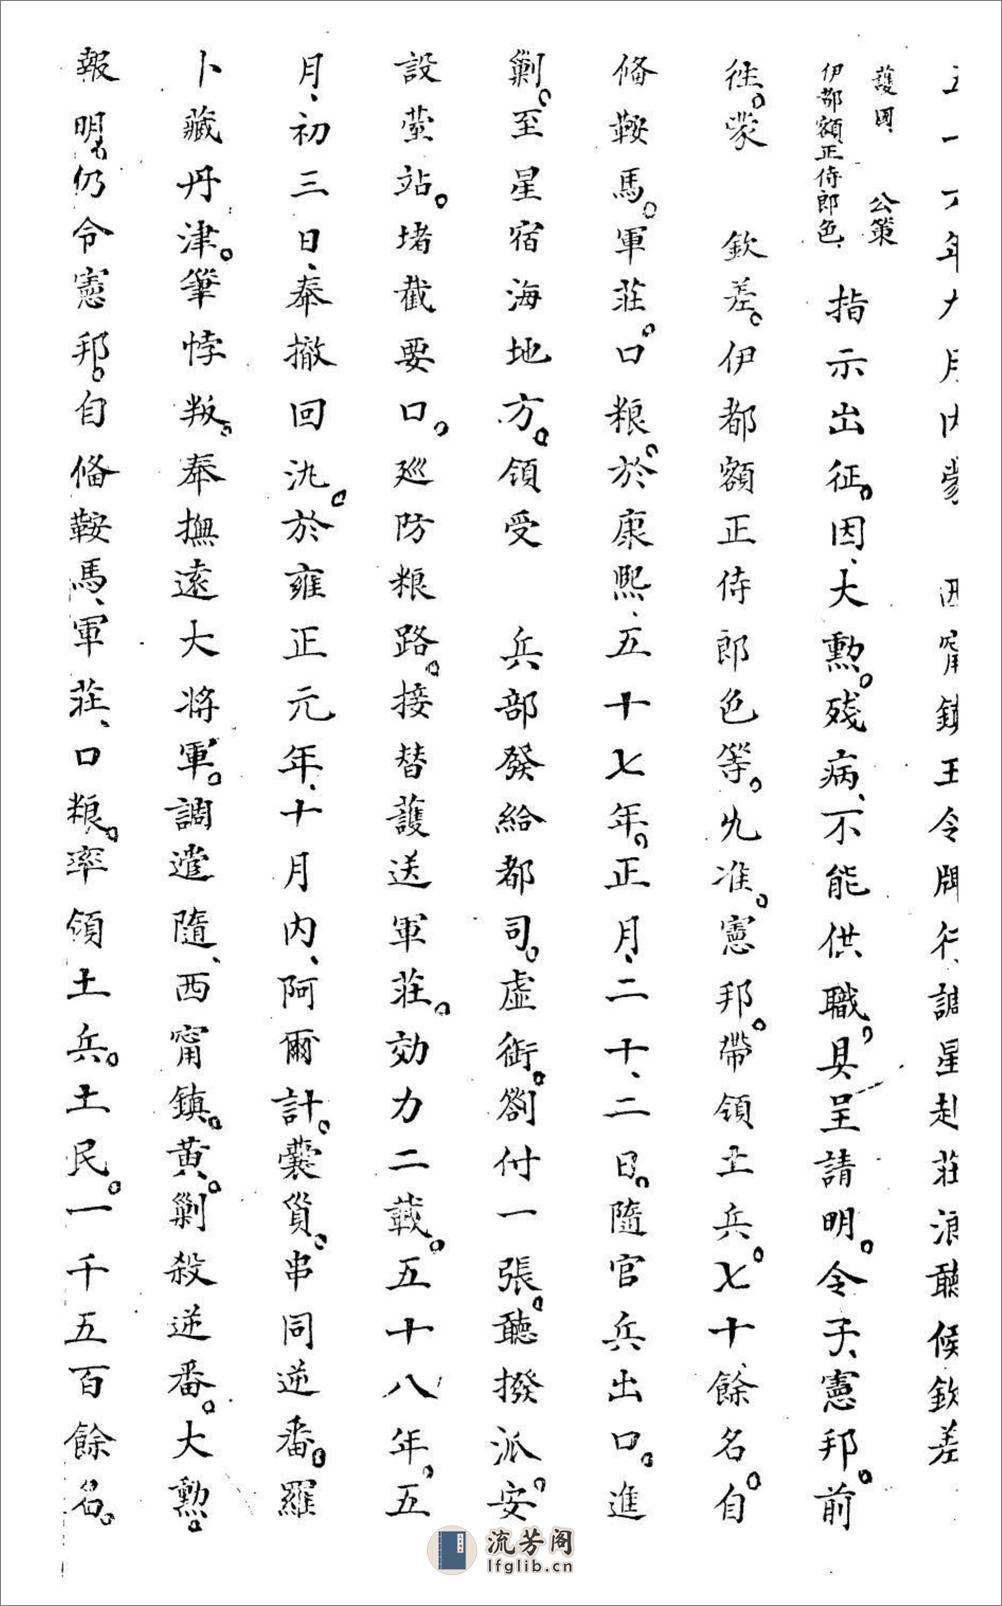 五十六年九月內蒙 西甯鎮王令牌行調星赴莊浪聽候欽差
護國 公策
伊都額正侍郎色、
指示出征。因、大勲。殘病、不能供職、具呈請明。令子、憲邦。前
徃。蒙 欽差。伊都額正侍郎色等。允准。憲邦。帶領土兵。七十餘名。自
偹鞍馬。軍莊。口粮。於康熙、五十七年。正月、二十、二日。隨官兵出口。進
剿。至星宿海地方。領受 兵部發給都司。虛銜。劄付一張。聽撥派安。
設䕦站。堵截要口。廵防粮路。接替護送軍莊。効力二載。五十八年。五
月、初三日、奉撤回汛。於雍正元年、十月內、阿爾計。囊貿。串同逆番。羅
卜藏丹津。肇悖叛。奉撫遠大将軍。調遣隨、西甯鎮。黄。剿殺逆番。大勲。
報明。仍令憲邦。自偹鞍馬、軍莊、口粮。率領土兵。土民。一千五百餘名。
流芳阁
lfglib.cn